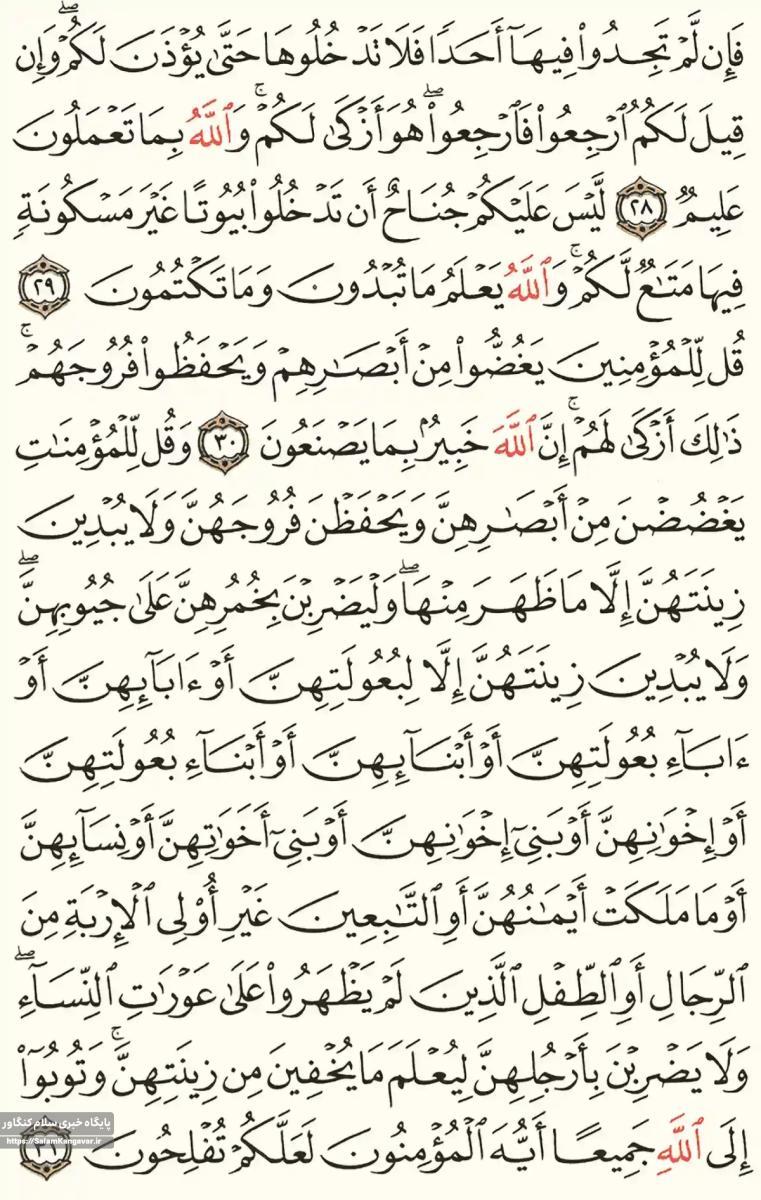 فَإِن لَّمْ تَجِدُوا۟ فِيهَآ أَحَدًا فَلَا تَدْخُلُوهَا حَتَّىٰ يُؤْذَنَ لَكُمْ ۖ وَإِن
قِيلَ لَكُمُ ٱرْجِعُوا۟ فَٱرْجِعُوا۟ ۖ هُوَ أَزْكَىٰ لَكُمْ ۚ وَٱللَّهُ بِمَا تَعْمَلُونَ
عَلِيمٌ ٢٨ لَّيْسَ عَلَيْكُمْ جُنَاحٌ أَن تَدْخُلُوا۟ بُيُوتًا غَيْرَ مَسْكُونَةٍ
فِيهَا مَتَٰعٌ لَّكُمْ ۚ وَٱللَّهُ يَعْلَمُ مَا تُبْدُونَ وَمَا تَكْتُمُونَ ٢٩
قُل لِّلْمُؤْمِنِينَ يَغُضُّوا۟ مِنْ أَبْصَٰرِهِمْ وَيَحْفَظُوا۟ فُرُوجَهُمْ ۚ
ذَٰلِكَ أَزْكَىٰ لَهُمْ ۚ إِنَّ ٱللَّهَ خَبِيرٌۢ بِمَا يَصْنَعُونَ ٣٠ وَقُل لِّلْمُؤْمِنَٰتِ
يَغْضُضْنَ مِنْ أَبْصَٰرِهِنَّ وَيَحْفَظْنَ فُرُوجَهُنَّ وَلَا يُبْدِينَ
زِينَتَهُنَّ إِلَّا مَا ظَهَرَ مِنْهَا ۖ وَلْيَضْرِبْنَ بِخُمُرِهِنَّ عَلَىٰ جُيُوبِهِنَّ ۖ
وَلَا يُبْدِينَ زِينَتَهُنَّ إِلَّا لِبُعُولَتِهِنَّ أَوْ ءَابَآئِهِنَّ أَوْ
ءَابَآءِ بُعُولَتِهِنَّ أَوْ أَبْنَآئِهِنَّ أَوْ أَبْنَآءِ بُعُولَتِهِنَّ
أَوْ إِخْوَٰنِهِنَّ أَوْ بَنِىٓ إِخْوَٰنِهِنَّ أَوْ بَنِىٓ أَخَوَٰتِهِنَّ أَوْ نِسَآئِهِنَّ
أَوْ مَا مَلَكَتْ أَيْمَٰنُهُنَّ أَوِ ٱلتَّٰبِعِينَ غَيْرِ أُو۟لِى ٱلْإِرْبَةِ مِنَ
ٱلرِّجَالِ أَوِ ٱلطِّفْلِ ٱلَّذِينَ لَمْ يَظْهَرُوا۟ عَلَىٰ عَوْرَٰتِ ٱلنِّسَآءِ ۖ
وَلَا يَضْرِبْنَ بِأَرْجُلِهِنَّ لِيُعْلَمَ مَا يُخْفِينَ مِن زِينَتِهِنَّ ۚ وَتُوبُوٓا۟
إِلَى ٱللَّهِ جَمِيعًا أَيُّهَ ٱلْمُؤْمِنُونَ لَعَلَّكُمْ تُفْلِحُونَ ٣١
پایگاه خبری سلام کنگاور
https://SalamKangavar.ir